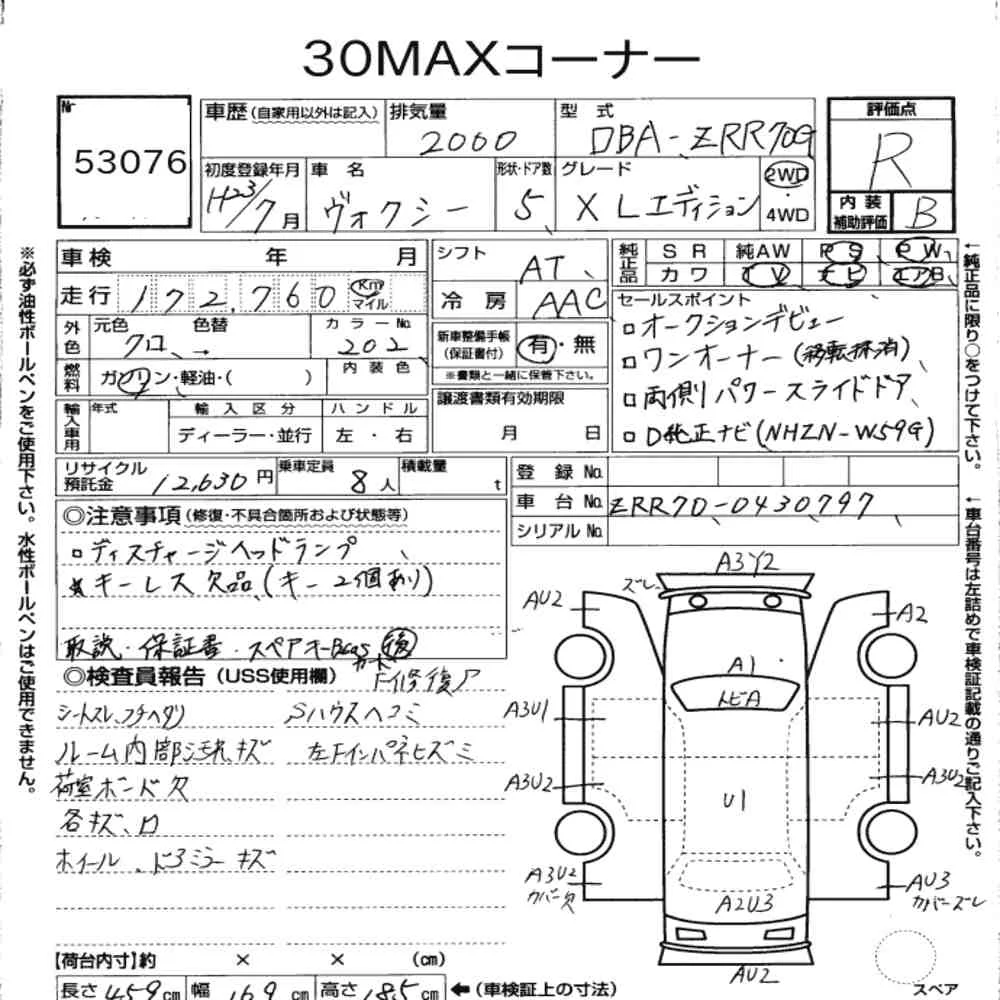 30MAXコーナー
Nr
53076
車歴(自家用以外は記入)
排気量
2000
型式
DBA-ZRR70G
評価点
R
初度登録年月
H23/7月
車名
ヴォクシー
形状・ドア数
5
グレード
X Lエディション
2WD
・
4WD
内装
補助評価
B
車検 年 月
走行 172,760 Km マイル
シフト
AT
冷房
AAC
純正品
SR 純AW PS PW
カワ TV ナビ エアB
外色
元色 色替
クロ →
カラーNo.
202
燃料
ガソリン・軽油・( )
内装色
新車整備手帳
(保証書付)
有・無
※書類と一緒に保管下さい。
セールスポイント
□オークションデビュー
□ワンオーナー(移転抹消)
□両側パワースライドドア
□D純正ナビ(NHZN-W59G)
輸入車用
年式
輸入区分
ディーラー・並行
ハンドル
左・右
譲渡書類有効期限
月 日
リサイクル
預託金
12,630円
乗車定員
8人
積載量
t
登録No.
車台No. ZRR70-0430797
シリアルNo.
◎注意事項(修復・不具合箇所および状態等)
□ディスチャージヘッドランプ
★キーレス欠品(キー2個あり)
取説・保証書・スペアキー 後
◎検査員報告(USS使用欄)
F修復ア
シートスレ、コゲ、ヘタリ
Sハウスヘコミ
ルーム内部汚れ、キズ
左Fインパネヒズミ
荷室ボード欠
各キズ、ロ
ホイール、ドアミラーキズ
A3Y2
ズレ
AU2
A2
A1
トビA
A3U1
AU2
A3U2
A3U2
U1
A3U2
カバー欠
AU3
カバーズレ
A2U3
AU2
スペア
【荷台内寸】約 × × (cm)
長さ 459cm 幅 169cm 高さ 185cm ←(車検証上の寸法)
※必ず油性ボールペンをご使用下さい。水性ボールペンはご使用できません。
←純正品に限り○をつけて下さい。
←車台番号は左詰めで車検証記載の通りご記入下さい。